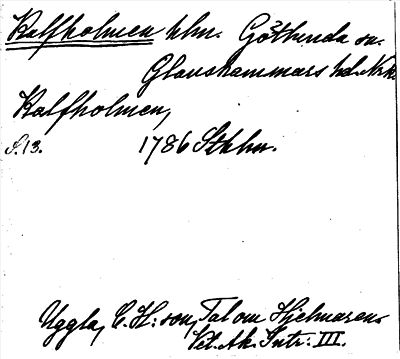 Kalfholmen hlm. Götlunda sn.
Glanshammars hd. Nrk.
Kalfholmen,
S. 13. 1786 Sthlm.
Uggla, C. H:son, Tal om Hjelmaren.
Vet. Ak. Intr. III.